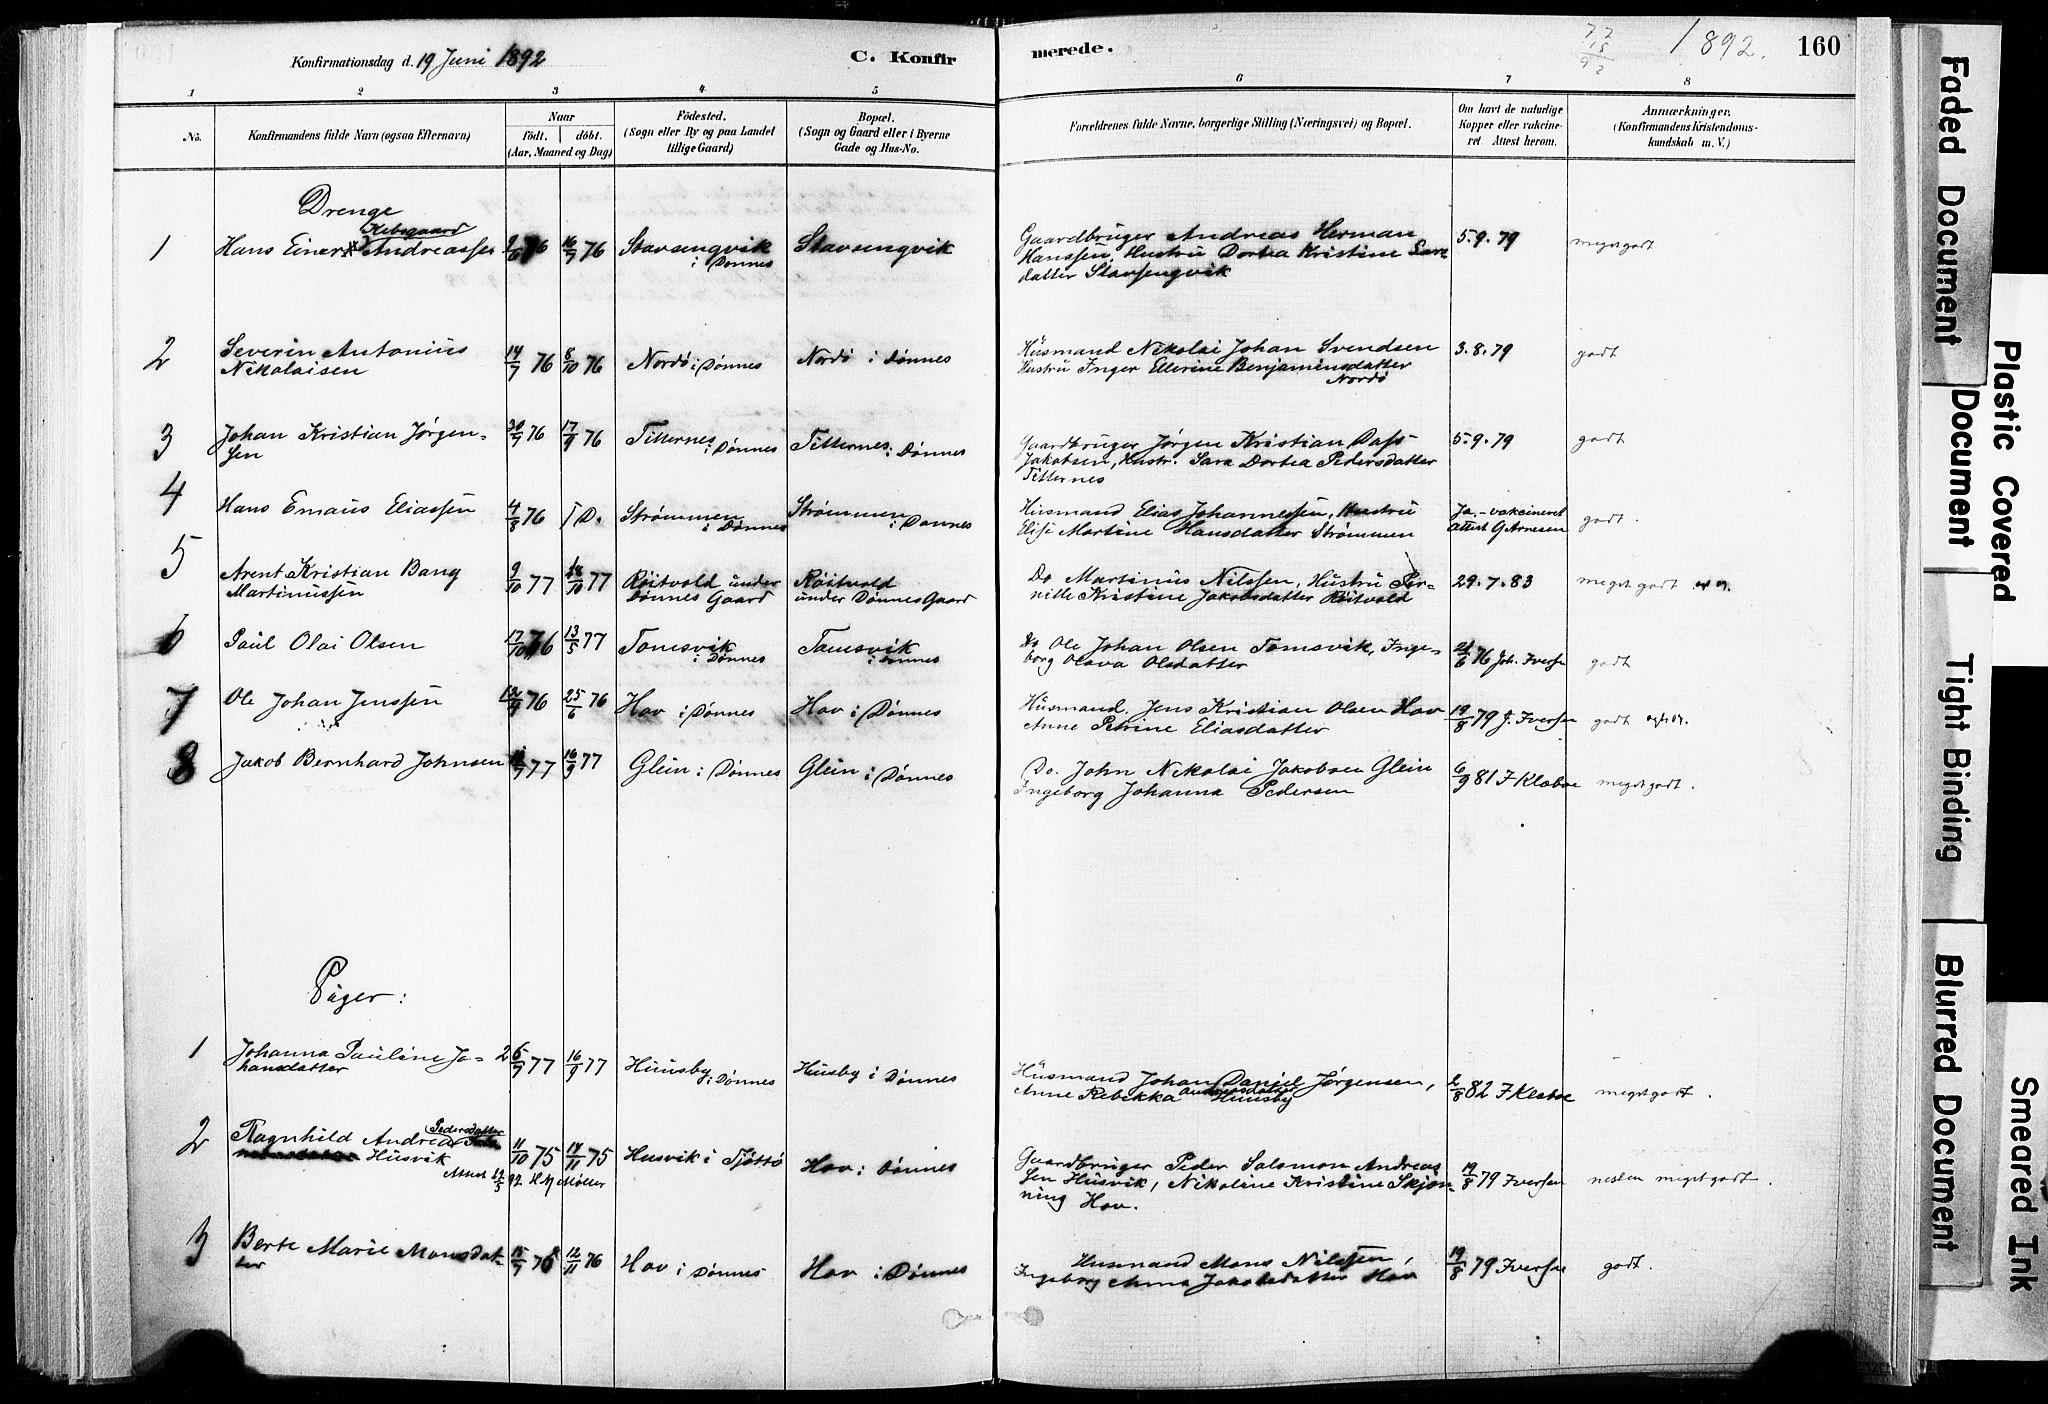 Konfirmationsdag d. 19 Juni 1892
C. Konfirmerede.
1892.
160
1 2 3 4 5 6 7 8
No.
Konfirmandens fulde Navn (ogsaa Efternavn)
Naar
født. døbt.
(Aar, Maaned og Dag)
Fødested.
(Sogn eller By og paa Landet
tillige Gaard)
Bopæl.
(Sogn og Gaard eller i Byerne
Gade og Hus-No.
Forældrenes fulde Navne, borgerlige Stilling (Næringsvei) og Bopæl.
Om havt de naturlige
Kopper eller vakcine-
ret Attest herom.
Anmærkninger.
(Konfirmandens Kristendoms-
kundskab m. V.)
Drenge
1 Hans Einar Andreassen 76 16/7 76 Stavsengvik i Dønnes Stavsengvik
Gaardbruger Andreas Herman
Hanssen, Hustru Dortea Kristine Lars
datter Stavsengvik
5.9.79 meget godt
2 Severin Antonius
Nikolaisen
14/7 76 8/10 76 Nordø i Dønnes Nordø i Dønnes
Husmand Nikolai Johan Svendsen
Hustru Inger Ellerine Benjaminsdatter
Nordø
3.8.79 godt
3 Johan Kristian Jørgen-
sen
30/7 76 17/9 76 Titternes i Dønnes Titternes i Dønnes
Gaardbruger Jørgen Kristian Dass
Jakobsen, Hustr. Sara Dortea Pedersdatter
Titternes
5.9.79 godt
4 Hans Emaus Eliassen 4/8 76 D. Strømmen i Dønnes Strømmen i Dønnes
Husmand Elias Johannessen, Hustru
Elise Martine Hansdatter Strømmen
Ja, vakcineret
attest G Arnesen
godt.
5 Arent Kristian Bang
Martinussen
9/10 77 28/10 77 Røitvold under
Dønnes Gaard
Røitvold
under Dønnes Gaard
Do Martinus Nilssen, Hustru Per-
nille Kristine Jakobsdatter Røitvold
29.7.83 meget godt
6 Paul Olai Olsen 17/10 76 13/5 77 Tomsvik i Dønnes Tomsvik i Dønnes
Do Ole Johan Olsen Tomsvik, Inge-
borg Olava Olsdatter
76 Joh. Iversen godt
7 Ole Johan Jenssen 76 25/6 76 Hov i Dønnes Hov i Dønnes
Husmand. Jens Kristian Olsen Hov
Anne Petrine Eliasdatter
19/8 79 J. Iversen godt
8 Jakob Bernhard Johnsen 77 16/9 77 Glein i Dønnes Glein i Dønnes
Do. John Nikolai Jakobsen Glein
Ingeborg Johanna Pedersen
6/9 81 F Klæboe meget godt.
Piger:
1 Johanna Pauline Jo-
hansdatter
26/7 77 16/9 77 Huusby i Dønnes Husby i Dønnes
Husmand Johan Daniel Jørgensen,
Anne Rebekka Andreasdatter Huusby
2/8 82 F Klæboe meget godt.
2 Ragnhild Andrea Pedersdatter
Husvik
Attest 92 H M Møller
11/10 75 14/11 75 Husvik i Tjøttø Hov i Dønnes
Gaardbruger Peder Salomon Andreas
sen Husvik, Nikoline Kristine Skjøn-
ning Hov.
19/8 79 Iversen nesten meget godt.
3 Berte Marie Monsdat-
ter
15/7 76 12/11 76 Hov i Dønnes Hov i Dønnes
Husmand Mons Nilssen,
Ingeborg Anna Jakobsdatter Hov
19/8 79 Iversen godt.
Faded Document
Plastic Covered
Document
Tight Binding
Blurred Document
Smeared Ink